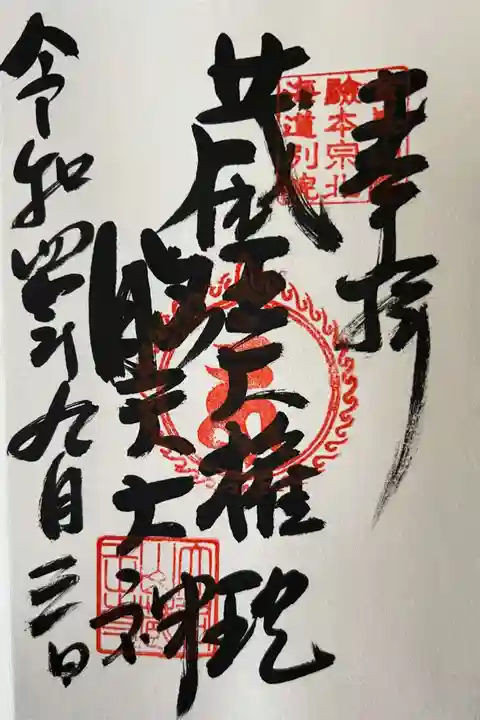 奉拝
蔵王大権現
勝夫大神
令和四年九月三日
験本宗北
海道別院